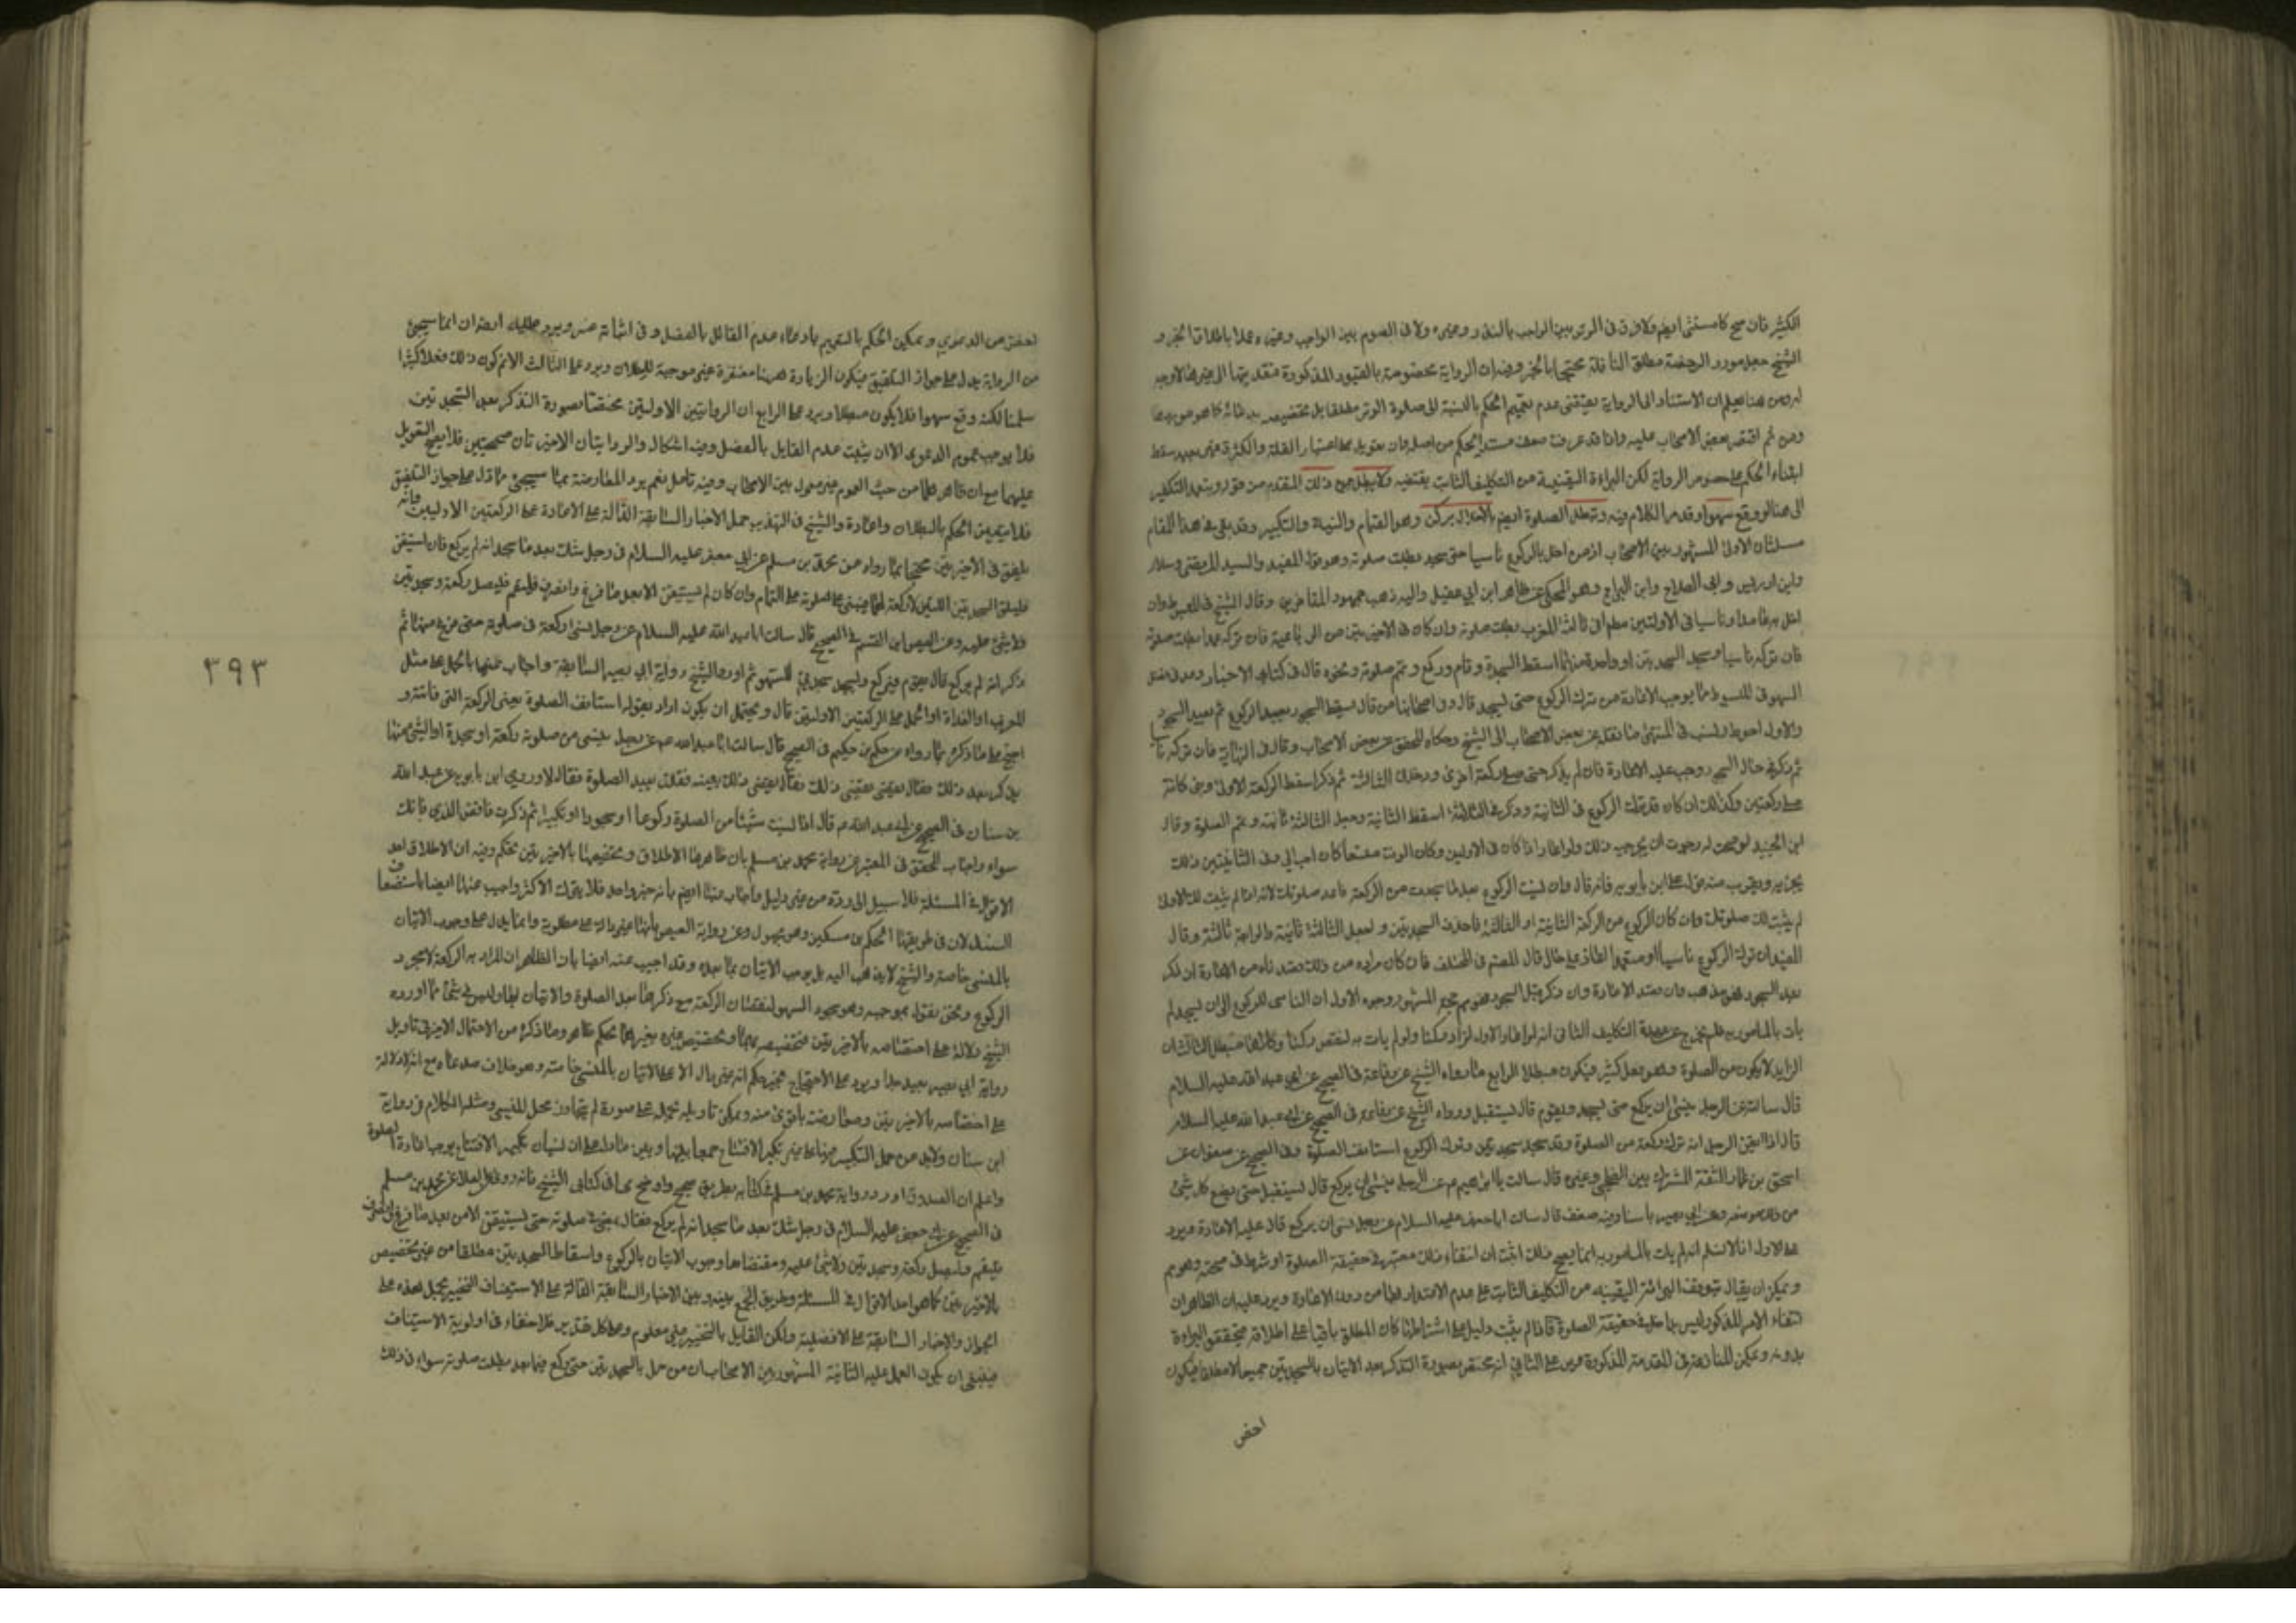 الكثير فان صح كا مستثنى ايضم ولا فرق في الوتر بين الواجب بالنذر وغيره ولا في العموم بين الواجب وغيره عملا باطلاق الخبر و
الشيخ جعل مورد الرخصة مطلق النافلة محتجا بالخبر وفيه ان الرواية مخصوصة بالقيود المذكورة فتقديمها الى غيرها لا وجه
ومن هنا يعلم ان الاستناد الى الرواية يقتضي عدم تعميم الحكم بالنسبة الى صلوة الوتر مطلقا بل تخصيصه
ومن ثم اقتصر بعض الاصحاب عليه واذا قد عرفت ضعف مستند الحكم من اصله فان تعويل على اعتبار القلة والكثرة
ابتناء الحكم على خصوص الرواية لكن البراءة اليقينية من التكليف الثابت يقتضيه ولا يبطل جميع ذلك المتقدم من
سهوا وقد مر الكلام فيه وتبطل الصلوة ايضم بالاخلال بركن وهو القيام والنية والتكبير وقد بقي في هذا المقام
مسئلتان الاولى المشهور بين الاصحاب ان من اخل بالركوع ناسيا حتى سجد بطلت صلوته وهو قول المفيد والسيد المرتضى وسلار
وابن ادريس وابي الصلاح وابن البراج وهو المحكي عن ظاهر ابن ابي عقيل واليه ذهب جمهور المتاخرين وقال الشيخ في المبسوط وان
اخل به عامدا او ناسيا في الاولتين مطم او في ثالثة المغرب بطلت صلوته وان كان في الاخيرتين من الرباعية فان تركه عمدا بطلت صلوته
فان تركه ناسيا وسجد السجدتين او واحدة منهما اسقط السجدة وقام وركع وتمم صلوته ونحوه قال في كتابي الاخبار وعد في فصل
السهو في المبسوط مما يوجب الاعادة من ترك الركوع حتى يسجد قال وفي اصحابنا من قال يسقط السجود ويعيد الركوع ثم يعيد السجود
والاول احوط ونسب في المنتهى ما نقله عن بعض الاصحاب الى الشيخ وحكاه المحقق عن بعض الاصحاب وقال في النهاية فان تركه ناسيا
ثم ذكر في حال السجود وجب عليه الاعادة فان لم يذكر حتى صلى ركعة اخرى ودخل في الثالثة ثم ذكر اسقط الركعة الاولى وبنى كانه
صلى ركعتين وكذلك ان كان قد ترك الركوع في الثانية وذكر في الثالثة اسقط الثانية وجعل الثالثة ثانية وتمم الصلوة وقال
ابن الجنيد لو صحت له رجوت ان يجزيه ذلك ولو اعاد اذا كان في الاوليين وكان الوقت متسعا كان احب الي وفي الثانيتين ذلك
يجزيه ويقرب منه قول علي بن بابويه فانه قال وان نسيت الركوع بعد ما سجدت من الركعة فاعد صلوتك لانه اذا لم يثبت لك الاولى
لم يثبت لك صلوتك وان كان الركوع من الركعة الثانية او الثالثة فاحذف السجدتين واجعل الثالثة ثانية والرابعة ثالثة وقال
المفيد ان ترك الركوع ناسيا او متعمدا اعاد على كل حال قال المصم في المختلف فان كان مراده من ذلك ما قصدناه من الاعادة ان ذكر
بعد السجود فهو مذهب وان قصد الاعادة وان ذكر قبل السجود فهو مم حجة المشهور وجوه الاول ان الناسي للركوع الى ان يسجد لم
يات بالمامور به فلم يخرج عن عهدة التكليف الثاني انه لو اعاد الاول لزاد ركنا ولو لم يات به لنقص ركنا وكلاهما مبطل الثالث ان
الزايد لا يكون من الصلوة وهو فعل كثير فيكون مبطلا الرابع ما رواه الشيخ عن رفاعة في الصحيح عن ابي عبد الله عليه السلام
قال سالته عن الرجل ينسى ان يركع حتى يسجد ويقوم قال يستقبل ورواه الشيخ عن رفاعة في الصحيح عن ابي عبد الله عليه السلام
قال اذا ايقن الرجل انه ترك ركعة من الصلوة وقد سجد سجدتين وترك الركوع استانف الصلوة وفي الصحيح عن صفوان عن
اسحق بن عمار الثقة المشترك بين الفطحي وغيره قال سالت ابا ابراهيم عم عن الرجل ينسى ان يركع قال يستقبل حتى يضع كل شئ
من ذلك موضعه وعن ابي بصير باسناد فيه ضعف قال سالت ابا جعفر عليه السلام عن رجل نسى ان يركع قال عليه الاعادة ويرد
على الاول انا لا نسلم انه لم يات بالمامور به انما يصح ذلك اثبت ان انتفاء ذلك معتبر في حقيقة الصلوة او شرط في صحته وهو مم
ويمكن ان يقال تتوقف البرائة اليقينيه من التكليف الثابت على عدم الاعتداد بها من دون الاعادة ويرد عليه ان الظاهر ان
انتفاء الامر المذكور ليس داخلا في حقيقة الصلوة فاذا لم يثبت دليل على اشتراطها كان المطلق باقيا على اطلاقه فيتحقق البراءة
بدونه ويمكن المنازعة في المقدمة المذكورة ويرد على الثاني انه مختص بصورة التذكر بعد الاتيان بالسجدتين جميعا لا مطلقا فيكون
اخص
اخص من الدعوى ويمكن الحكم بالتعميم بادعاء عدم القائل بالفصل وفي اثباته عسر ويرد عليه ايضا ان ما سيجئ
من الرواية يدل على جواز التلفيق فيكون الزيادة ههنا مغتفرة غير موجبة للبطلان ويرد على الثالث الا نم كون ذلك فعلا كثيرا
سلمنا لكنه وقع سهوا فلا يكون مبطلا ويرد على الرابع ان الروايتين الاوليتين مختصتا بصورة التذكر بعد السجدتين
فلا يوجب عموم الدعوى الا ان يثبت عدم القايل بالفصل وفيه اشكال والروايتان الاخيرتان صحيحتين فلا يصح التعويل
عليهما مع ان ظاهرهما من حيث العموم غير معول بين الاصحاب وفيه تامل نعم يرد المعارضة بما سيجئ مما دل على جواز التلفيق
فلا يتعين الحكم بالبطلان والاعادة والشيخ في التهذيب حمل الاخبار السابقة الدالة على الاعادة على الركعتين الاوليين وانه
يلفق في الاخيرتين محتجا بما رواه عن محمد بن مسلم عن ابي جعفر عليه السلام في رجل شك بعد ما سجد انه لم يركع فان استيقن
فليلق السجدتين اللتين لا ركعة لهما فيبنى على صلوته على التمام وان كان لم يستيقن الا بعد ما فرغ وانصرف فليقم فليصل ركعة وسجدتين
ولا شئ عليه وعن العيص ابن القسم في الصحيح قال سالت ابا عبد الله عليه السلام عن رجل نسى ركعة من صلوته حتى فرغ منها ثم
ذكر انه لم يركع قال يقوم فيركع ويسجد سجدتي السهو ثم اورد الشيخ رواية ابي بصير السابقة واجاب عنها بالحمل على مثل
المغرب او الغداة او الحمل على الركعتين الاوليتين قال ويحتمل ان يكون اراد بقوله استانف الصلوة يعني الركعة التي فاتته و
احتج على ما ذكره بما رواه عن حكم بن حكيم في الصحيح قال سالت ابا عبد الله عم عن رجل ينسى من صلوته ركعة او سجدة او الشئ منها
ثم ذكر بعد ذلك فقال يقضي ذلك بعينه فقلت يعيد الصلوة فقال لا وروى ابن بابويه عن عبد الله
بن سنان في الصحيح عن ابي عبد الله ع قال اذا نسيت شيئا من الصلوة ركوعا او سجودا او تكبيرا ثم ذكرت فاقض الذي فاتك
سهوا واجاب المحقق في المعتبر عن رواية محمد بن مسلم بان ظاهرها الاطلاق وتخصيصها بالاخيرتين تحكم وفيه ان الاطلاق احد
الاقوال في المسئلة فلا سبيل الى رده من غير دليل واجاب عنها ايضم بانه خبر واحد فلا يترك الاكثر واجيب عنها ايضا باستضعاف
السند لان في طريقها الحكم بن مسكين وهو مجهول وعن رواية العيص بانها غير دالة على مطلوبه وانما يدل على وجوب الاتيان
بالمنسي خاصة والشيخ لا يذهب اليه بل يوجب الاتيان بما بعده وقد اجيب عنه ايضا بان الظاهر ان المراد به الركعة لا مجرد
الركوع ونحن نقول بموجبه وهو سجود السهو لنقصان الركعة مع ذكرها بعد الصلوة والاتيان بها وليس في شئ مما اورده
الشيخ دلالة على اختصاصه بالاخيرتين فتخصيصه بهما وتخصيص غيره بغيرهما تحكم ظاهر وما ذكره من الاحتمال الاخير في تاويل
رواية ابي بصير بعيد جدا ويرد على الاحتجاج بخبر حكم انه غير دال الا على الاتيان بالمنسي خاصة وهو خلاف مدعاه مع انه لا دلالة
على اختصاصه بالاخيرتين ومعارضته باقوى منه ويمكن تاويله بحمله على صورة لم يتجاوز محل المنسي ومثله الكلام في رواية
ابن سنان ولابد من حمل التكبير فيها على غير تكبير الافتتاح جمعا بينها وبين ما دل على ان نسيان تكبير الافتتاح يوجب اعادة الصلوة
واعلم ان الصدوق اورد رواية محمد بن مسلم في كتابه بطريق صحيح واوضح مما في كتابي الشيخ فانه روى عن العلا عن محمد بن مسلم
في الصحيح عن ابي جعفر عليه السلام في رجل شك بعد ما سجد انه لم يركع فقال يمضي في صلوته حتى يستيقن الا من بعد ما فرغ وانصرف
فليقم وليصل ركعة وسجدتين ولا شئ عليه ومقتضاها وجوب الاتيان بالركوع واسقاط السجدتين مطلقا من غير تخصيص
بالاخيرتين كما هو احد الاقوال في المسئلة وطريق الجمع بينه وبين الاخبار السابقة الدالة على الاستيناف التخيير بحمل هذه على
الجواز والاخبار السابقة على الافضلية ولكن القايل بالتخيير غير معلوم وعلى كل تقدير فلا خفاء في اولوية الاستيناف
فينبغي ان يكون العمل عليه الثانية المشهور بين الاصحاب ان من اخل بالسجدتين حتى ركع فيما بعد بطلت صلوته سواء في ذلك
٣٩٣